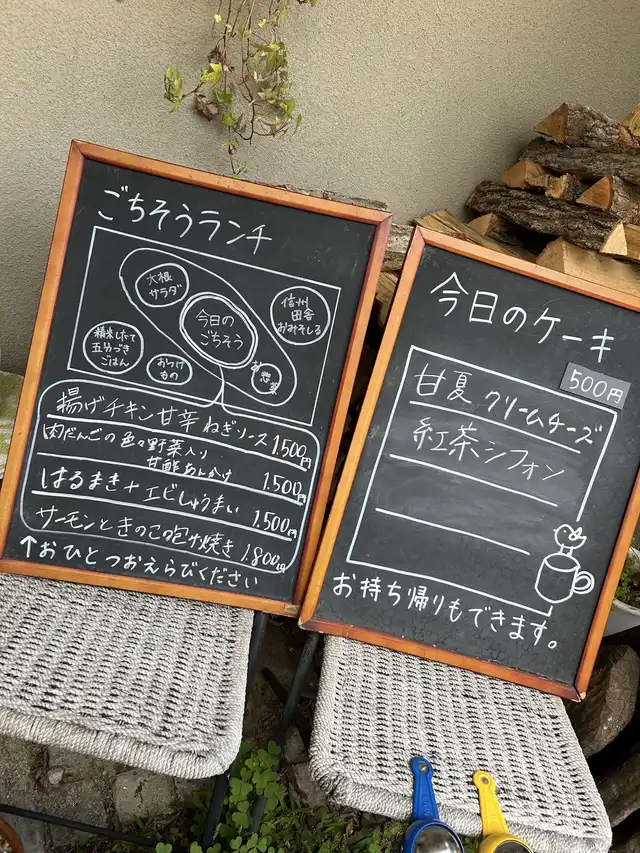 ごちそうランチ
大根
サラダ
今日の
ごちそう
信州
田舎
おみそしる
精米したて
五分づき
ごはん
おつけ
もの
お惣菜
揚げチキン甘辛ねぎソース 1,500円
肉だんごの色々野菜入り
甘酢あんかけ 1,500円
はるまき+エビしゅうまい 1,500円
サーモンときのこの包み焼き 1,800円
↑おひとつおえらびください
今日のケーキ
500円
甘夏クリームチーズ
紅茶シフォン
お持ち帰りもできます。